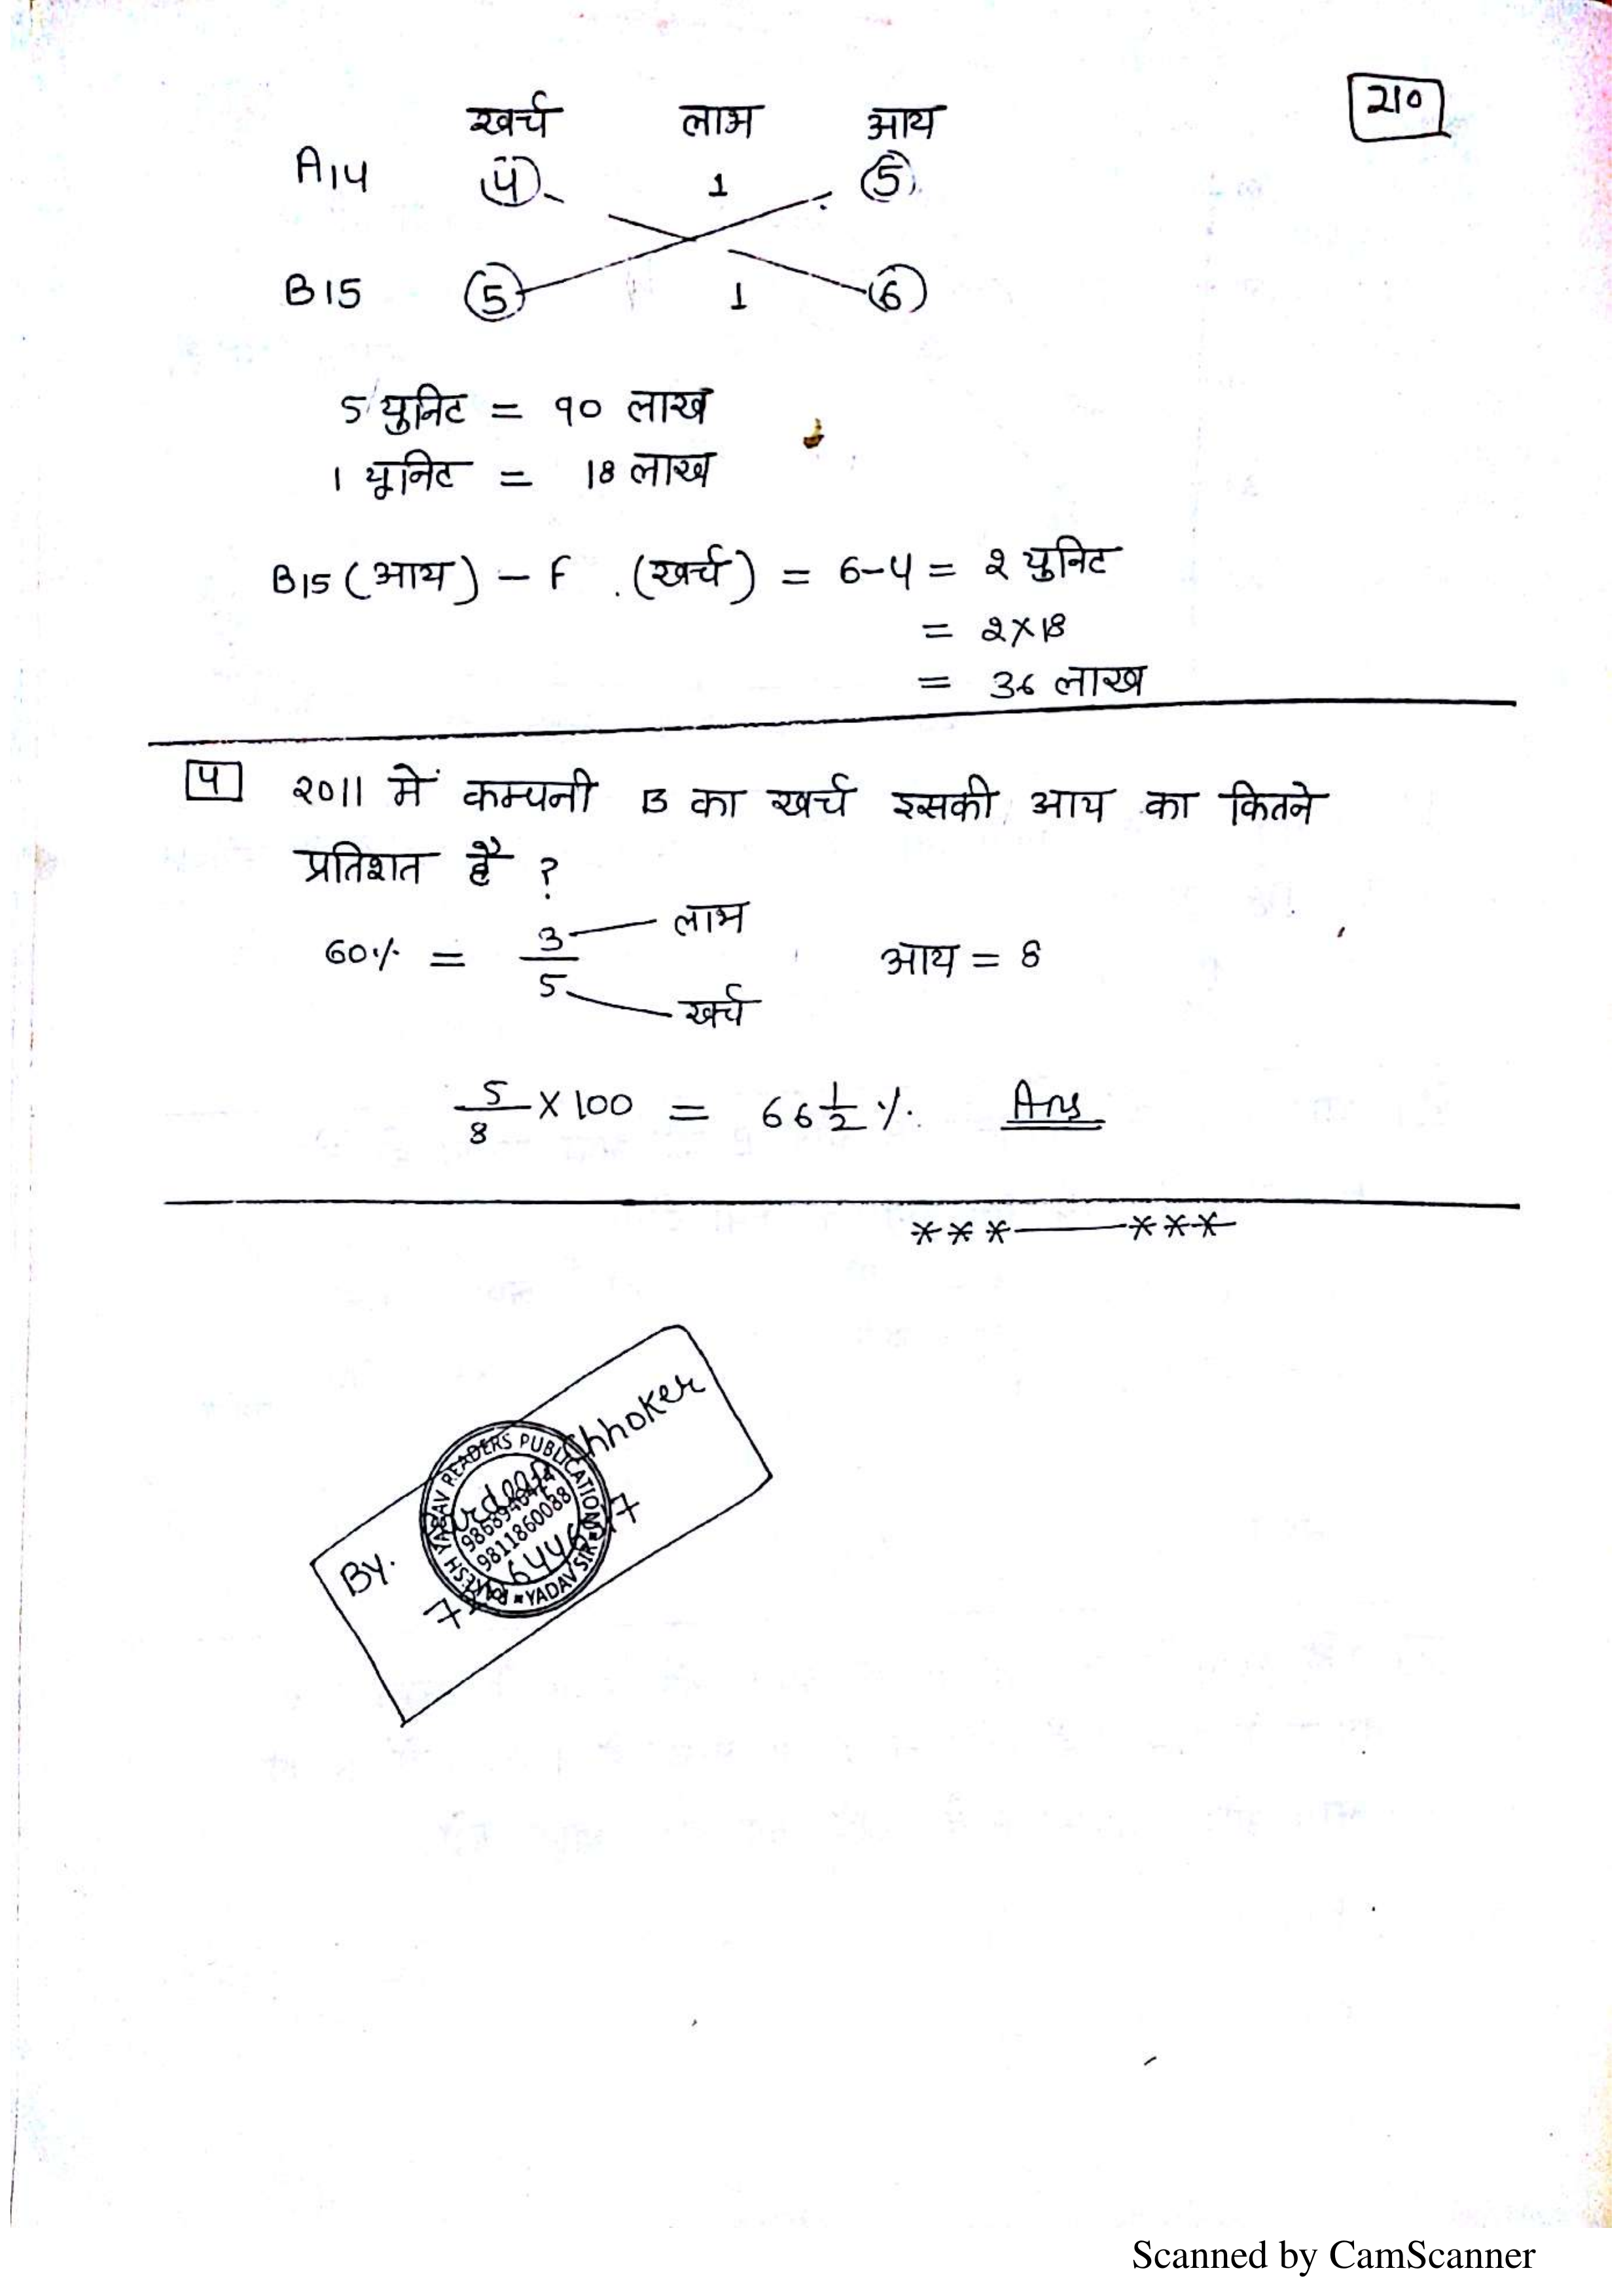 210
खर्च लाभ आय
A14 4 1 5
B15 5 1 6
5 युनिट = 90 लाख
1 यूनिट = 18 लाख
B15 (आय) - F (खर्च) = 6-4 = 2 युनिट
= 2×18
= 36 लाख
4 2011 में कम्पनी B का खर्च इसकी आय का कितने
प्रतिशत है ?
60% = 3/5 लाभ खर्च आय = 8
5/8 × 100 = 66 1/2 %. Ans
***——***
By. Chhoker
RAKESH YADAV READERS PUBLICATION
9811860088
YADAV SIR
Scanned by CamScanner